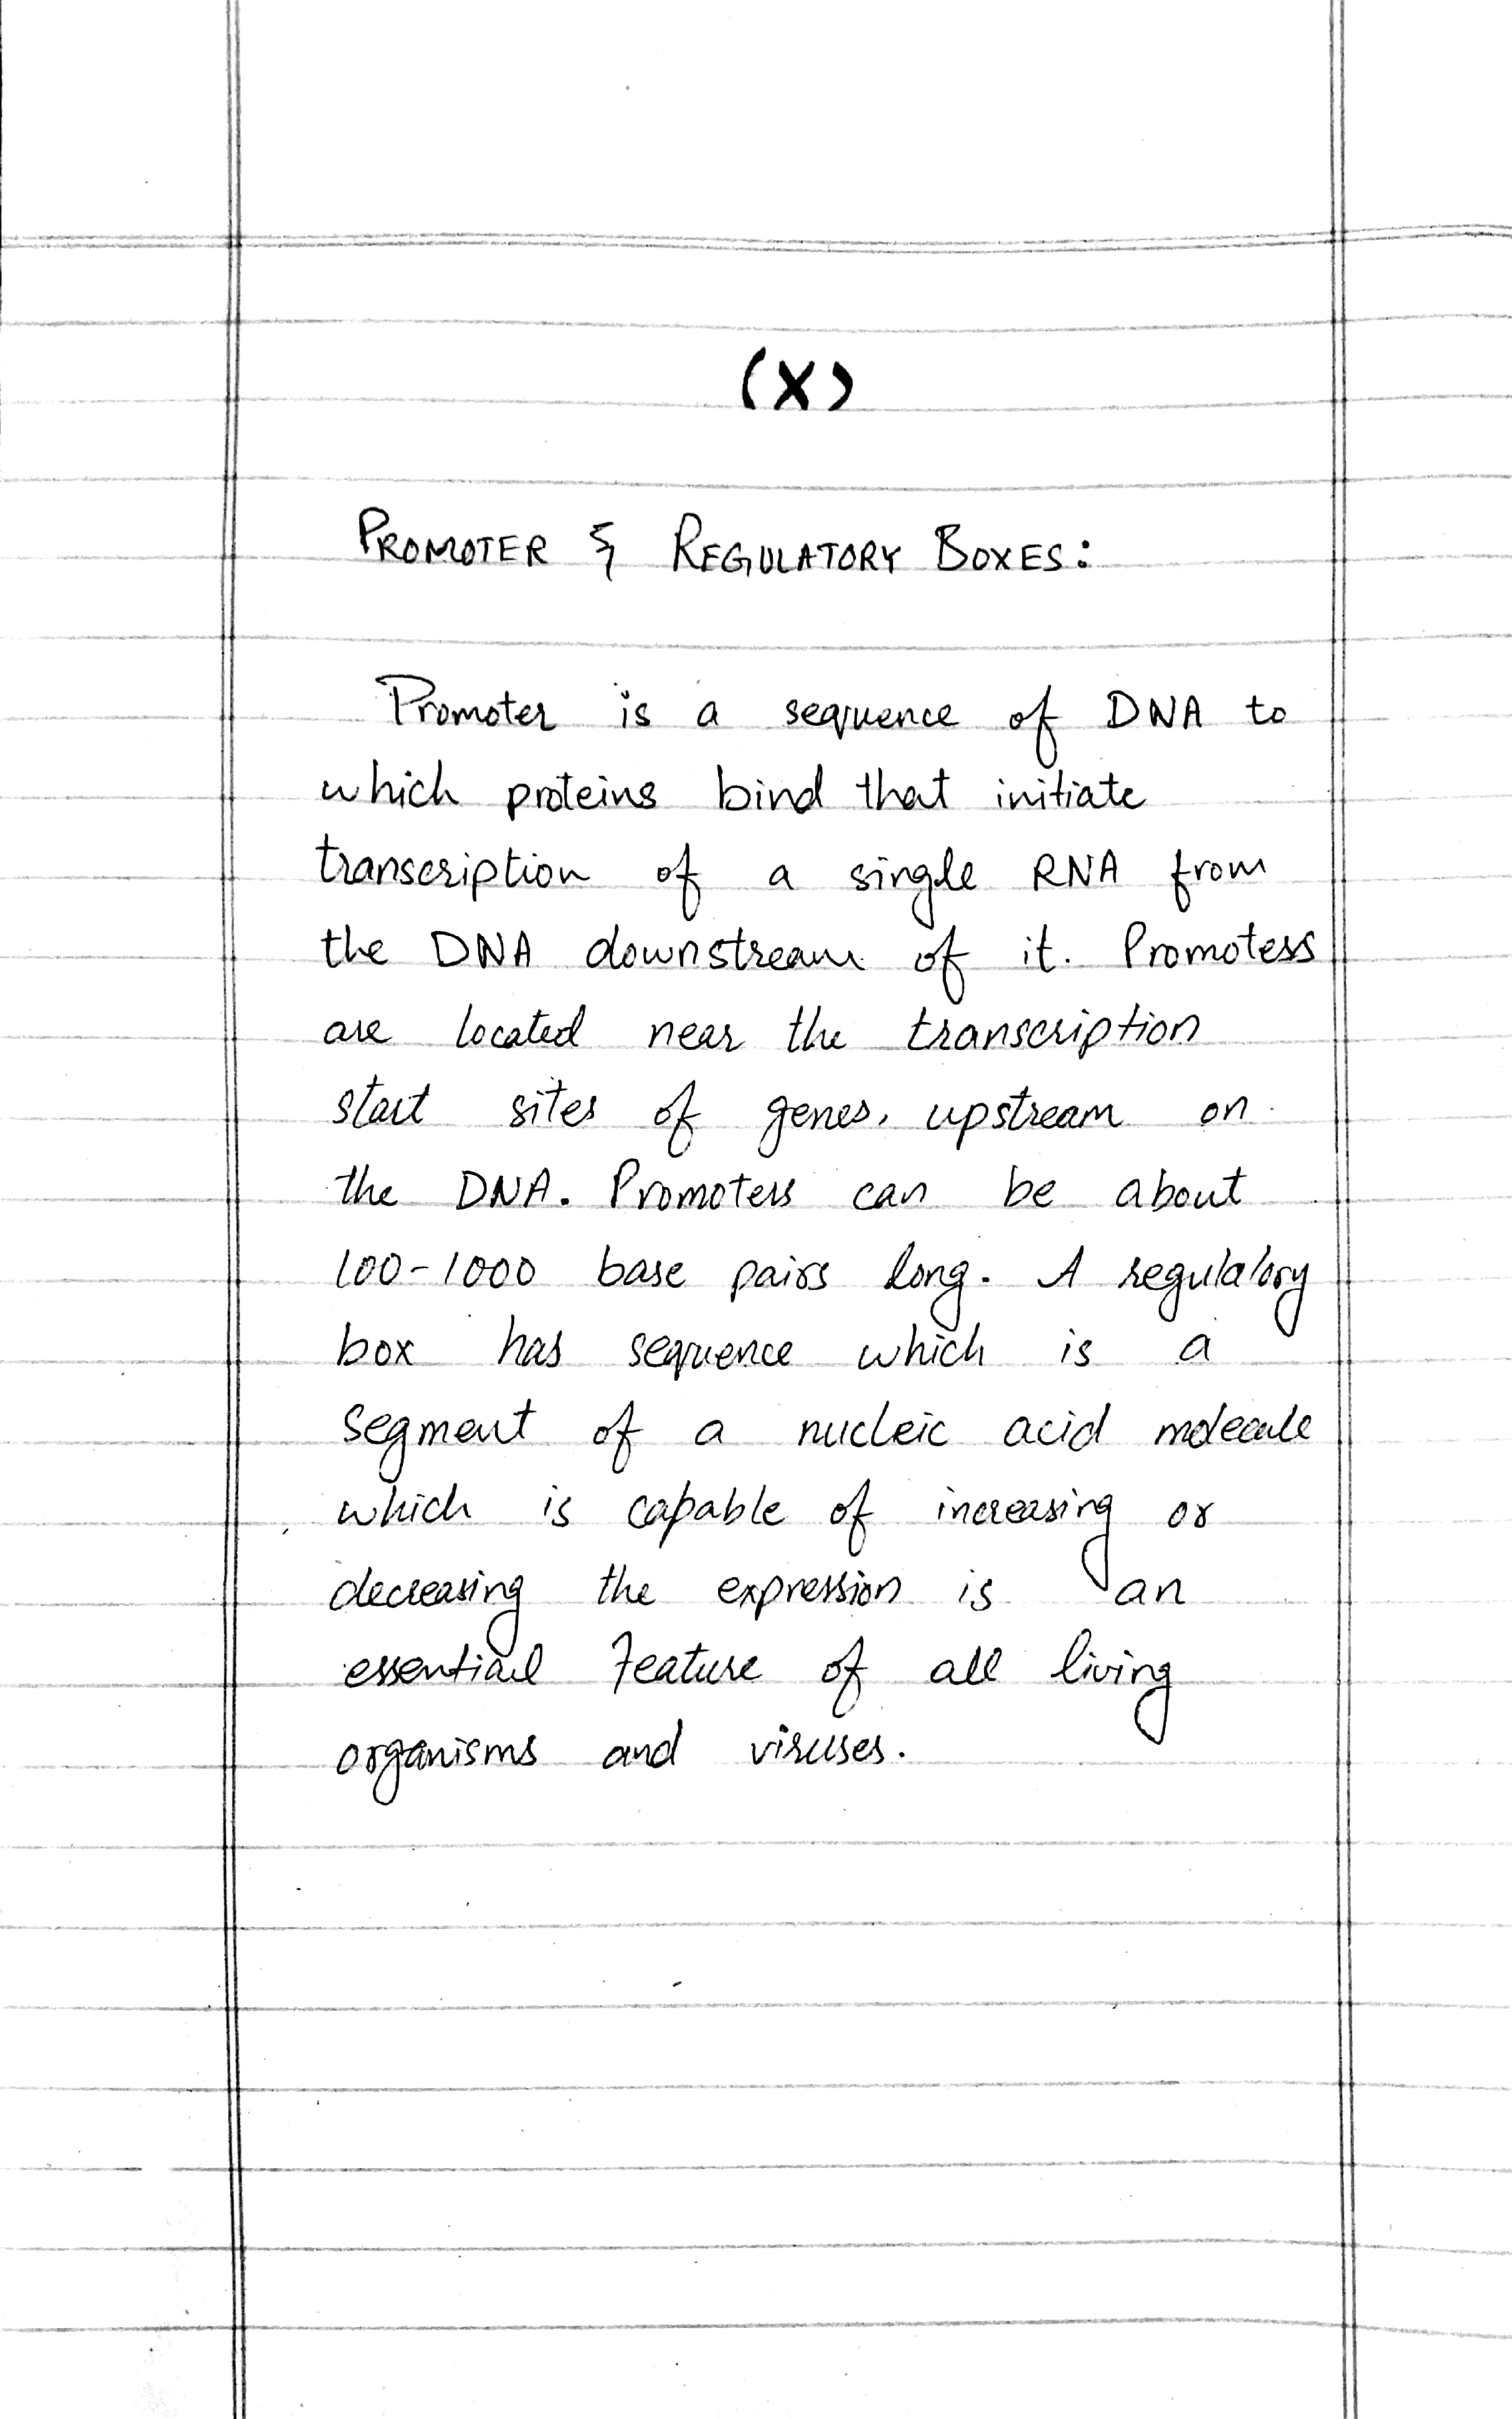 (X)
PROMOTER & REGULATORY BOXES:
Promoter is a sequence of DNA to
which proteins bind that initiate
transcription of a single RNA from
the DNA downstream of it. Promoters
are located near the transcription
start sites of genes, upstream on
the DNA. Promoters can be about
100-1000 base pairs long. A regulatory
box has sequence which is a
segment of a nucleic acid molecule
which is capable of increasing or
decreasing the expression is an
essential feature of all living
organisms and viruses.